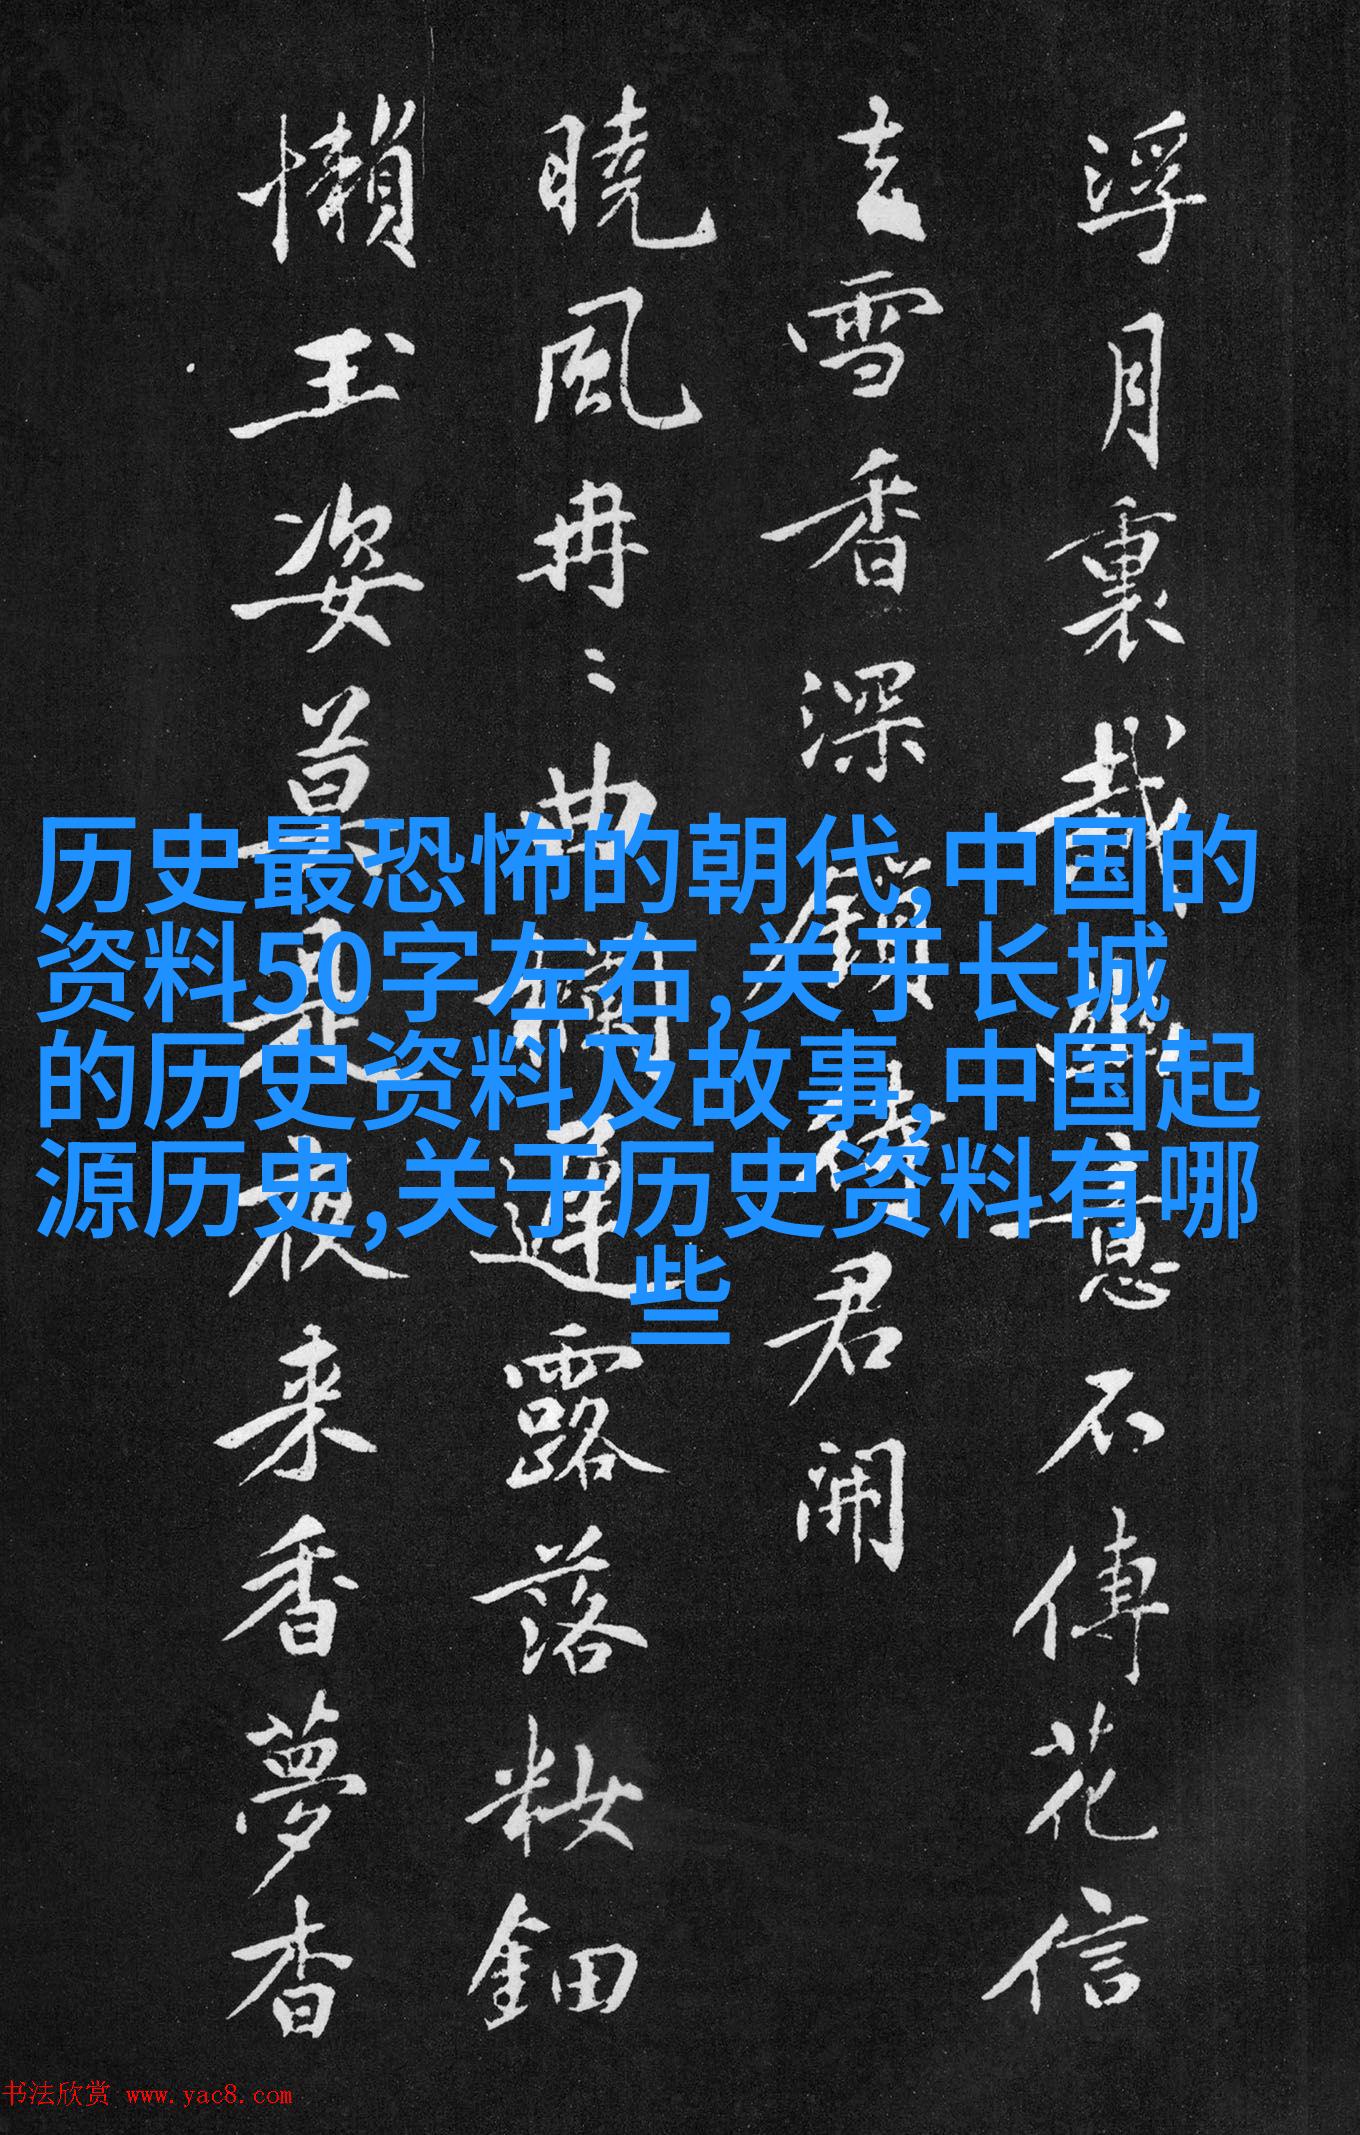 浮月裏意不傳花信
去雪香深鎖君開
曉風冉〻曲欄露落粧鈿
懶玉姿莫是夜来香夢杳
历史最恐怖的朝代,中国的
资料50字左右,关于长城
的历史资料及故事,中国起
源历史,关于历史资料有哪
些
书法欣赏 www.yac8.com